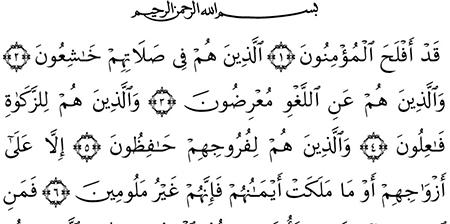 بسم الله الرحمن الرحيم
قَدْ أَفْلَحَ ٱلْمُؤْمِنُونَ ۝١ ٱلَّذِينَ هُمْ فِى صَلَاتِهِمْ خَـٰشِعُونَ ۝٢
وَٱلَّذِينَ هُمْ عَنِ ٱللَّغْوِ مُعْرِضُونَ ۝٣ وَٱلَّذِينَ هُمْ لِلزَّكَوٰةِ
فَـٰعِلُونَ ۝٤ وَٱلَّذِينَ هُمْ لِفُرُوجِهِمْ حَـٰفِظُونَ ۝٥ إِلَّا عَلَىٰٓ
أَزْوَٰجِهِمْ أَوْ مَا مَلَكَتْ أَيْمَـٰنُهُمْ فَإِنَّهُمْ غَيْرُ مَلُومِينَ ۝٦ فَمَنِ